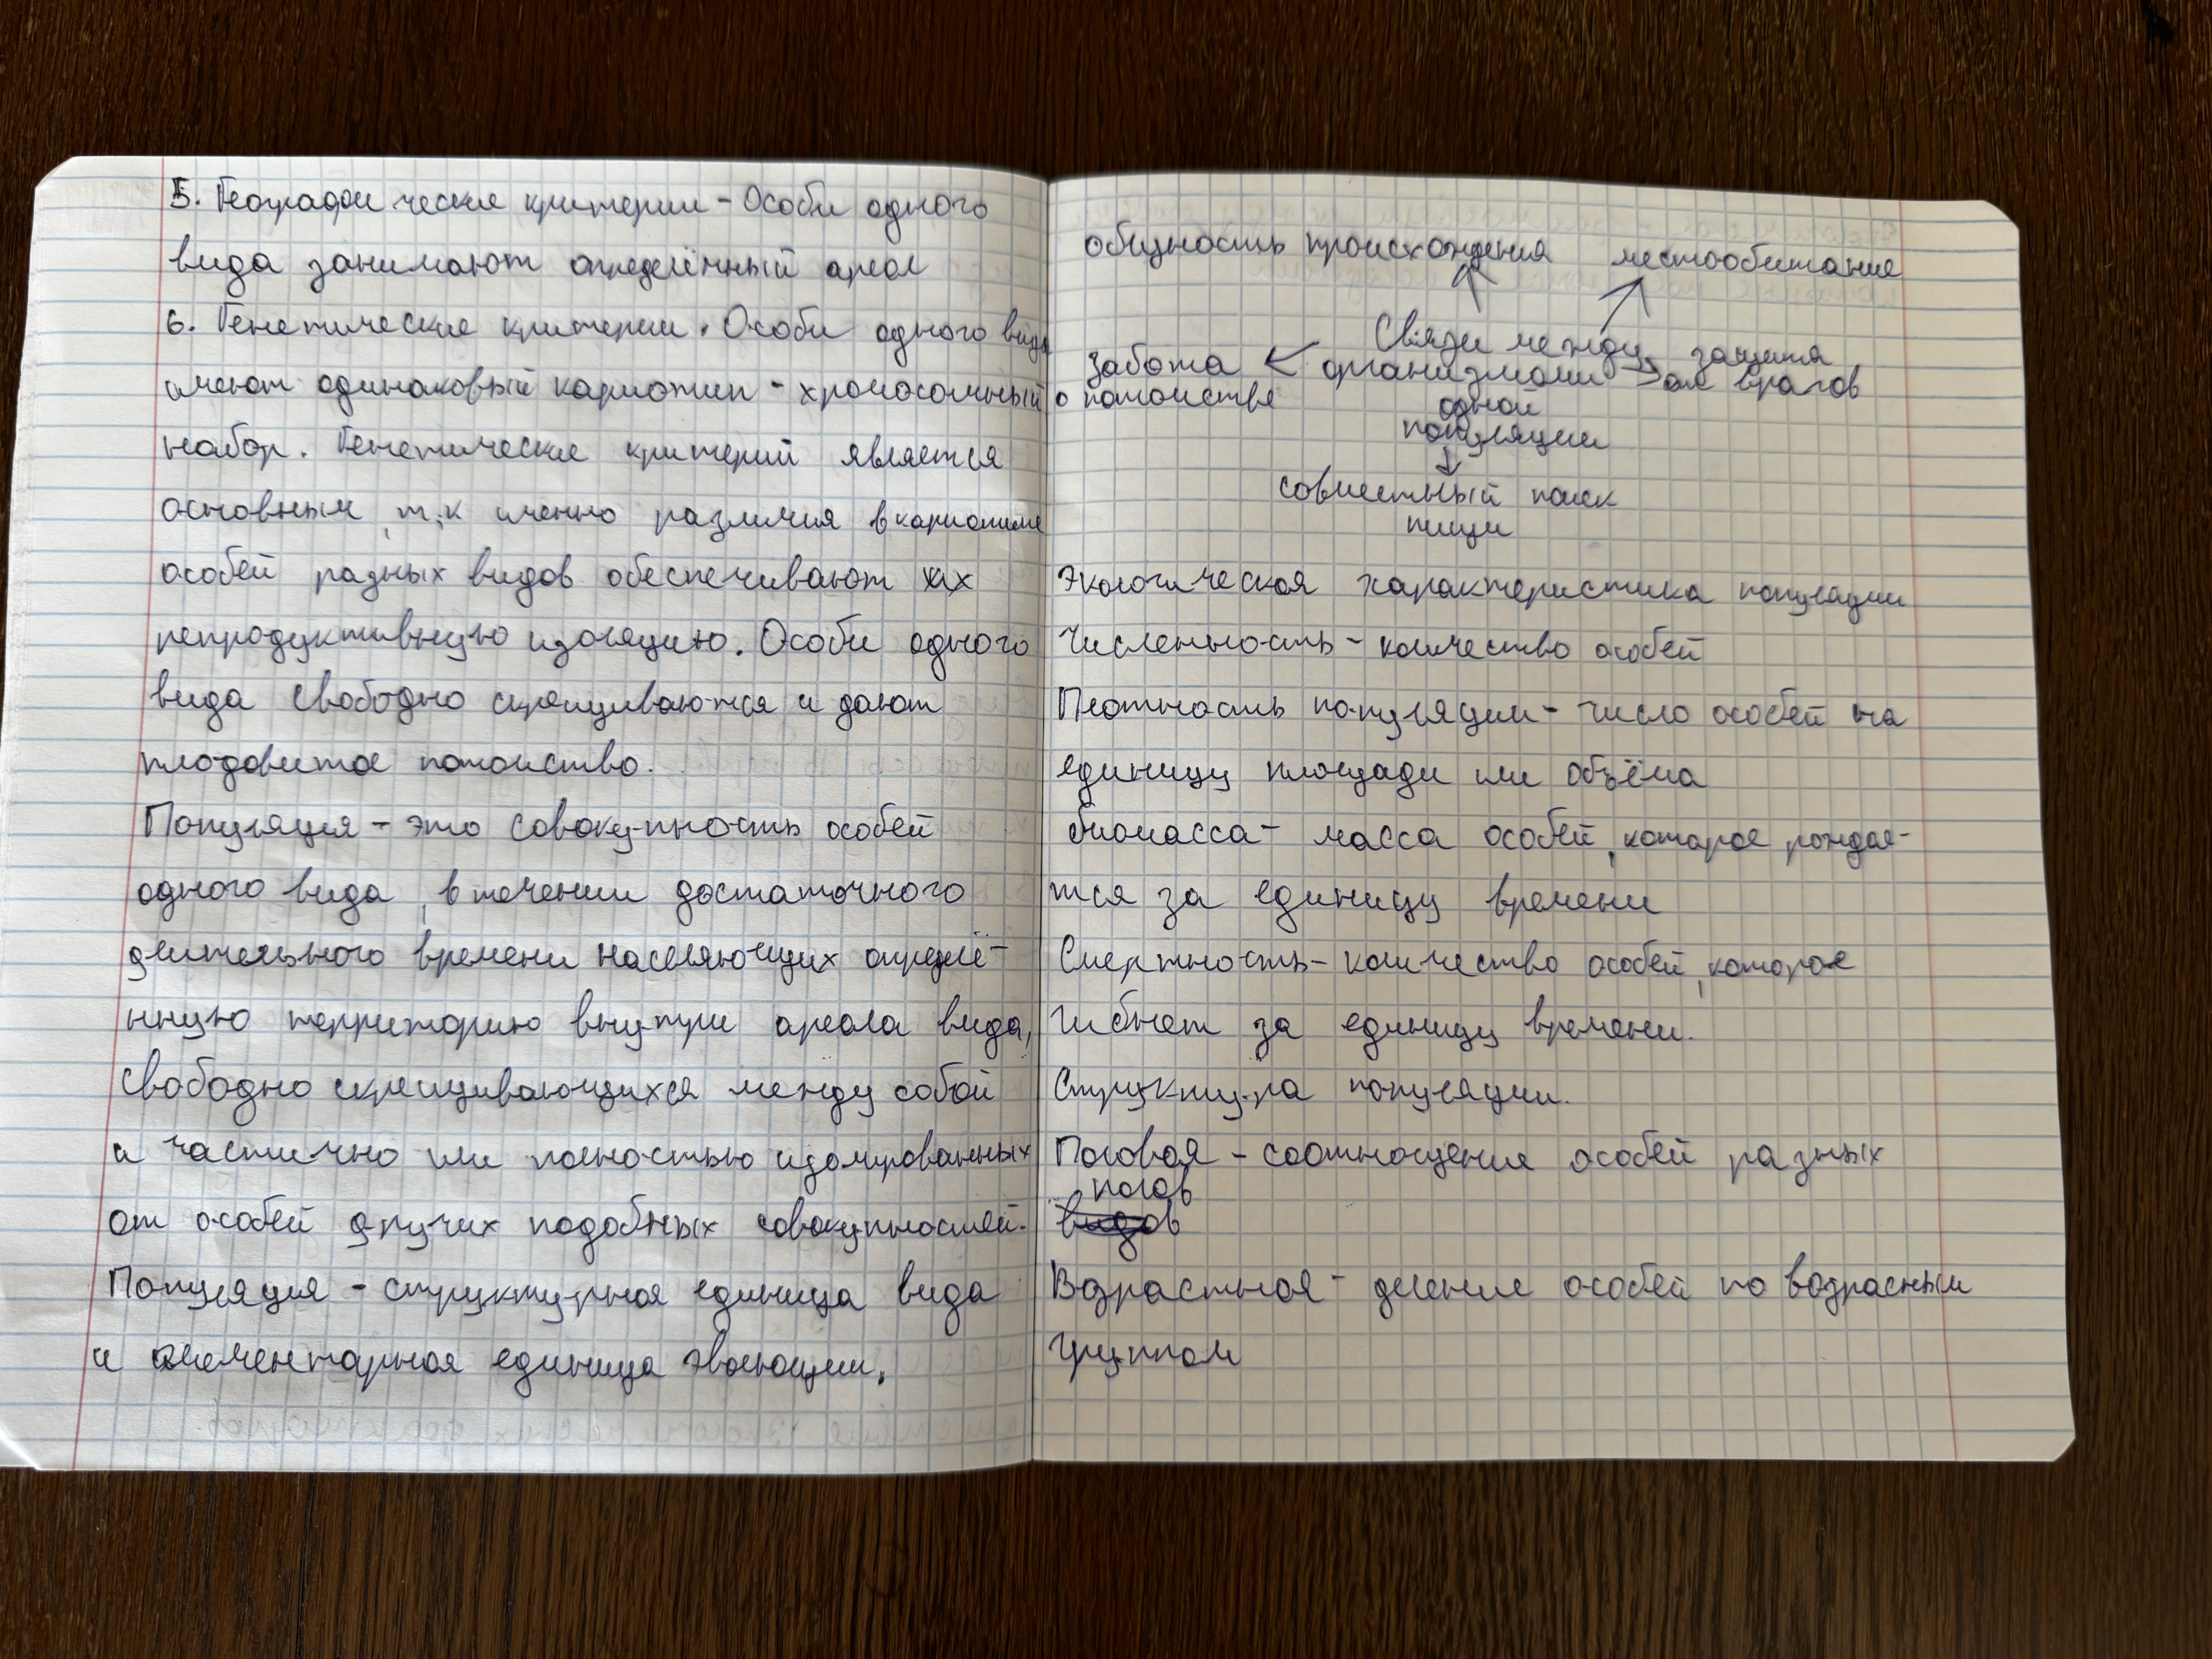 5. Географические критерии - Особи одного
вида занимают определённый ареал
6. Генетические критерии. Особи одного вида
имеют одинаковый кариотип - хромосомный
набор. Генетические критерий является
основным, т.к именно различия в кариотипе
особей разных видов обеспечивают их
репродуктивную изоляцию. Особи одного
вида свободно скрещиваются и дают
плодовитое потомство.
Популяция - это совокупность особей
одного вида, в течении достаточного
длительного времени населяющих определё-
нную территорию внутри ареала вида,
свободно скрещивающихся между собой
и частично или полностью изолированных
от особей других подобных совокупностей.
Популяция - структурная единица вида
и элементарная единица эволюции.
общность происхождения местообитание
Связи между
организмами
одной
популяции
забота
о потомстве
защита
от врагов
совместный поиск
пищи
Экологическая характеристика популяции
Численность - количество особей
Плотность популяции - число особей на
единицу площади или объёма
биомасса - масса особей, которое рождае-
тся за единицу времени
Смертность - количество особей, которое
гибнет за единицу времени.
Структура популяции.
Половая - соотношения особей разных
полов
видов
Возрастная - деление особей по возрасным
группам